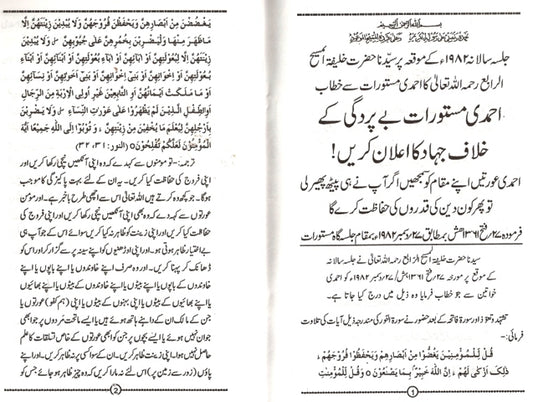 بسم اللہ الرحمن الرحیم
جلسہ سالانہ ۱۹۸۲ء کے موقعہ پر سیدنا حضرت خلیفۃ المسیح
الرابع رحمہ اللہ تعالیٰ کا احمدی مستورات سے خطاب
احمدی مستورات بے پردگی کے
خلاف جہاد کا اعلان کریں!
احمدی عورتیں اپنے مقام کو سمجھیں اگر آپ نے ہی پیٹھ پھیر لی
تو پھر کون دین کی قدروں کی حفاظت کرے گا
فرمودہ ۲۷ فتح ۱۳۶۱ ہش بمطابق ۲۷ دسمبر ۱۹۸۲ء بمقام جلسہ گاہ مستورات
سیدنا حضرت خلیفۃ المسیح الرابع رحمہ اللہ تعالیٰ نے جلسہ سالانہ
کے موقع پر مورخہ ۲۷ فتح ۱۳۶۱ ہش / ۲۷ دسمبر ۱۹۸۲ء کو احمدی
خواتین سے جو خطاب فرمایا وہ ذیل میں درج کیا جاتا ہے۔
تشہد و تعوذ اور سورۃ فاتحہ کے بعد حضور نے سورۃ النور کی مندرجہ ذیل آیات کی تلاوت
فرمائی:
قُلْ لِّلْمُؤْمِنِيْنَ يَغُضُّوْا مِنْ اَبْصَارِهِمْ وَيَحْفَظُوْا فُرُوْجَهُمْ ؕ
ذٰلِكَ اَزْكٰى لَهُمْ ؕ اِنَّ اللّٰهَ خَبِيْرٌۢ بِمَا يَصْنَعُوْنَ o وَقُلْ لِّلْمُؤْمِنٰتِ
1
يَغْضُضْنَ مِنْ اَبْصَارِهِنَّ وَيَحْفَظْنَ فُرُوْجَهُنَّ وَلَا يُبْدِيْنَ زِيْنَتَهُنَّ اِلَّا
مَا ظَهَرَ مِنْهَا وَلْيَضْرِبْنَ بِخُمُرِهِنَّ عَلٰى جُيُوْبِهِنَّ وَلَا يُبْدِيْنَ
زِيْنَتَهُنَّ اِلَّا لِبُعُوْلَتِهِنَّ اَوْ اٰبَآئِهِنَّ اَوْ اٰبَآءِ بُعُوْلَتِهِنَّ اَوْ اَبْنَآئِهِنَّ اَوْ اَبْنَآءِ
بُعُوْلَتِهِنَّ اَوْ اِخْوَانِهِنَّ اَوْ بَنِىْٓ اِخْوَانِهِنَّ اَوْ بَنِىْٓ اَخَوٰتِهِنَّ اَوْ نِسَآئِهِنَّ
اَوْ مَا مَلَكَتْ اَيْمَانُهُنَّ اَوِ التّٰبِعِيْنَ غَيْرِ اُولِى الْاِرْبَةِ مِنَ الرِّجَالِ
اَوِ الطِّفْلِ الَّذِيْنَ لَمْ يَظْهَرُوْا عَلٰى عَوْرٰتِ النِّسَآءِ وَلَا يَضْرِبْنَ
بِاَرْجُلِهِنَّ لِيُعْلَمَ مَا يُخْفِيْنَ مِنْ زِيْنَتِهِنَّ ؕ وَتُوْبُوْٓا اِلَى اللّٰهِ جَمِيْعًا اَيُّهَ
الْمُؤْمِنُوْنَ لَعَلَّكُمْ تُفْلِحُوْنَ o (النور: ۳۱، ۳۲)
ترجمہ: تو مومنوں سے کہہ دے کہ وہ اپنی آنکھیں نیچی رکھا کریں اور
اپنی فروج کی حفاظت کیا کریں۔ یہ ان کے لئے بہت پاکیزگی کا موجب
ہوگا۔ جو کچھ وہ کرتے ہیں اللہ تعالیٰ اس سے اچھی طرح باخبر ہے۔ اور مومن
عورتوں سے کہہ دے کہ وہ بھی اپنی آنکھیں نیچی رکھا کریں اور اپنی فروج کی
حفاظت کیا کریں اور اپنی زینت کو ظاہر نہ کیا کریں سوائے اس کے جو آپ ہی
بے اختیار ظاہر ہوتی ہو۔ اور اپنی اوڑھنیوں کو اپنے سینہ پر سے گزار کر اور اس کو
ڈھانک کر پہنا کریں۔ اور وہ صرف اپنے خاوندوں یا اپنے
باپوں یا اپنے خاوندوں کے باپوں یا اپنے بیٹوں یا اپنے خاوندوں کے بیٹوں یا اپنے بھائیوں یا
اپنے بھائیوں کے بیٹوں یا اپنی بہنوں کے بیٹوں یا اپنی (ہم کفو) عورتوں یا
جن کے مالک ان کے داہنے ہاتھ ہوئے ہیں یا ایسے ماتحت مردوں پر جو ابھی
جوان نہیں ہوئے یا ایسے بچوں پر جن کو ابھی عورتوں کے خاص تعلقات کا علم
حاصل نہیں ہوا۔ اپنی زینت ظاہر کریں۔ ان کے سوا کسی پر نہ ظاہر کریں۔ اور اپنے
پاؤں (زور سے زمین پر) اس لئے نہ مارا کریں کہ وہ چیز ظاہر ہو جائے جس کو
2